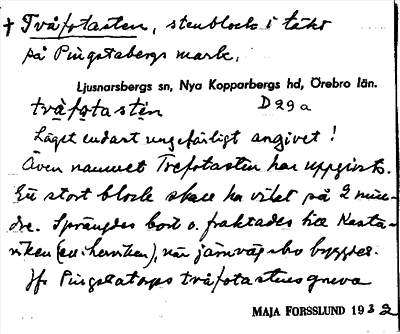 † Tvåfotasten, stenblock i täkt
på Pingstabergs mark.
Ljusnarsbergs sn, Nya Kopparbergs hd, Örebro län.
tvåfotastēn D 29 a
Läget endast ungefärligt angivet!
Även namnet Trefotasten har uppgivits.
Ett stort block skall ha vilat på 2 min-
dre. Sprängdes bort o. fraktades till
när järnvägsbro byggdes.
Jfr tvåfotastensgruva
MAJA FORSSLUND 1932